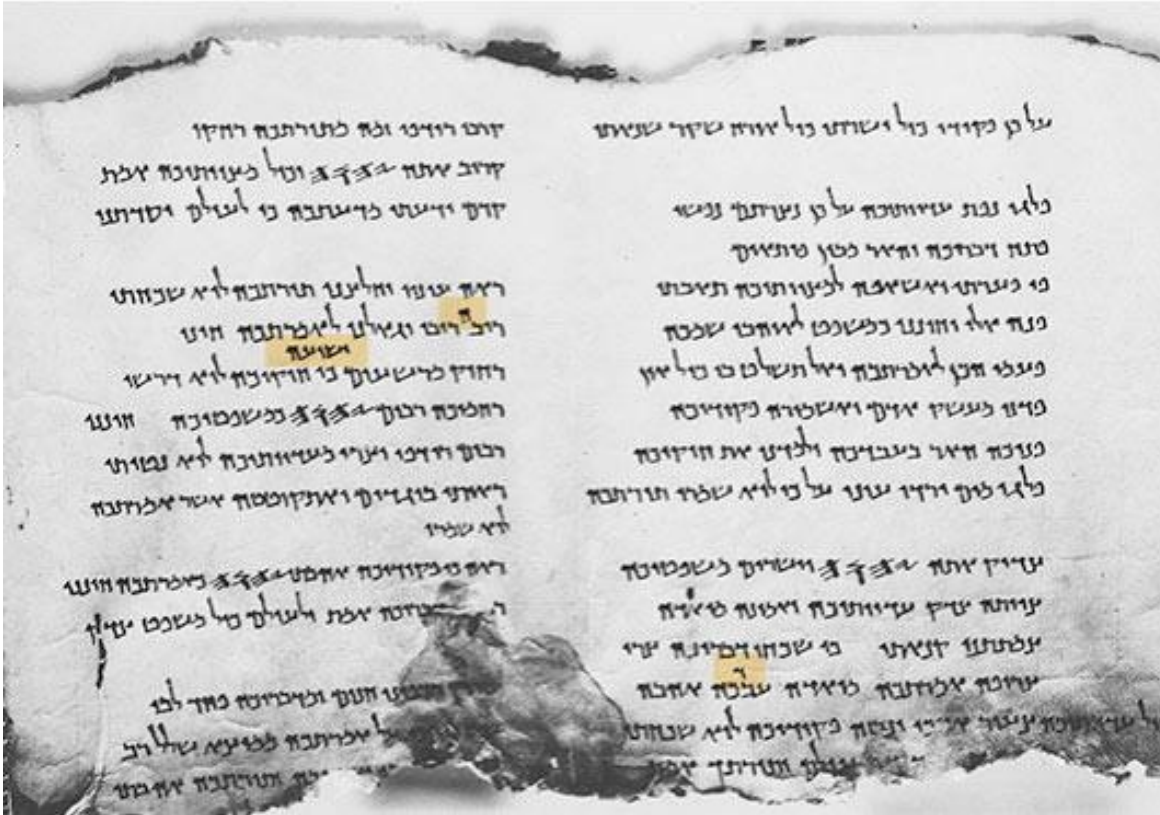 על כן פקודי כול ישרתי כול אורח שקר שנאתי
פלגי נפת עדוותיכה על כן נצרתם נפשי
פתח דבריכה והאר מבין פתאים
פי פערתי ואשאפה למצוותיכה תאבתי
פנה אלי וחונני כמשפט לאוהבי שמכה
פעמי הכן לאמרתכה ואל תשלט בי כול און
פדני מעשק אדם ואשמורה פקודיכה
פניכה האר בעבדכה ולמדני את חוקיכה
פלגי מים ירדו עיני על כי לוא שמרו תורתכה
צדיק אתה 𐤉𐤄𐤅𐤄 וישרים משפטיכה
צויתה צדק עדוותיכה ואמונה מואדה
צמתתני קנאתי כי שכחו דבריכה צרי
ד
צרופה אמרתכה מואדה עבכה אהבה
צעיר ונבזה פקודיכה לוא שכחתי
קרבו רודפי זמה מתורתכה רחקו
קרוב אתה 𐤉𐤄𐤅𐤄 וכול מצוותיכה אמת
קדם ידעתי מדעתכה כי לעולם יסדתני
ראה עוניי וחלצני תורתכה לוא שכחתי
ה
ריב ריבי וגאלני לאמרתכה חיני
ישועה
רחוק מרשעים כי חוקיכה לוא דרשו
רחמיכה רבים 𐤉𐤄𐤅𐤄 כמשפטיכה חונני
רבים רודפי וצרי מעדוותיכה לוא נטיתי
ראיתי בוגדים ואתקוטטה אשר אמרתכה
לוא שמרו
ראה כי פקודיכה אהבתי 𐤉𐤄𐤅𐤄 כאמרתכה חונני
אמת ולעולם כול משפט צדק
חנם ומדבריכה פחד לבי
על אמרתכה כמוצא שלל רב
ותורתכה אהבתי